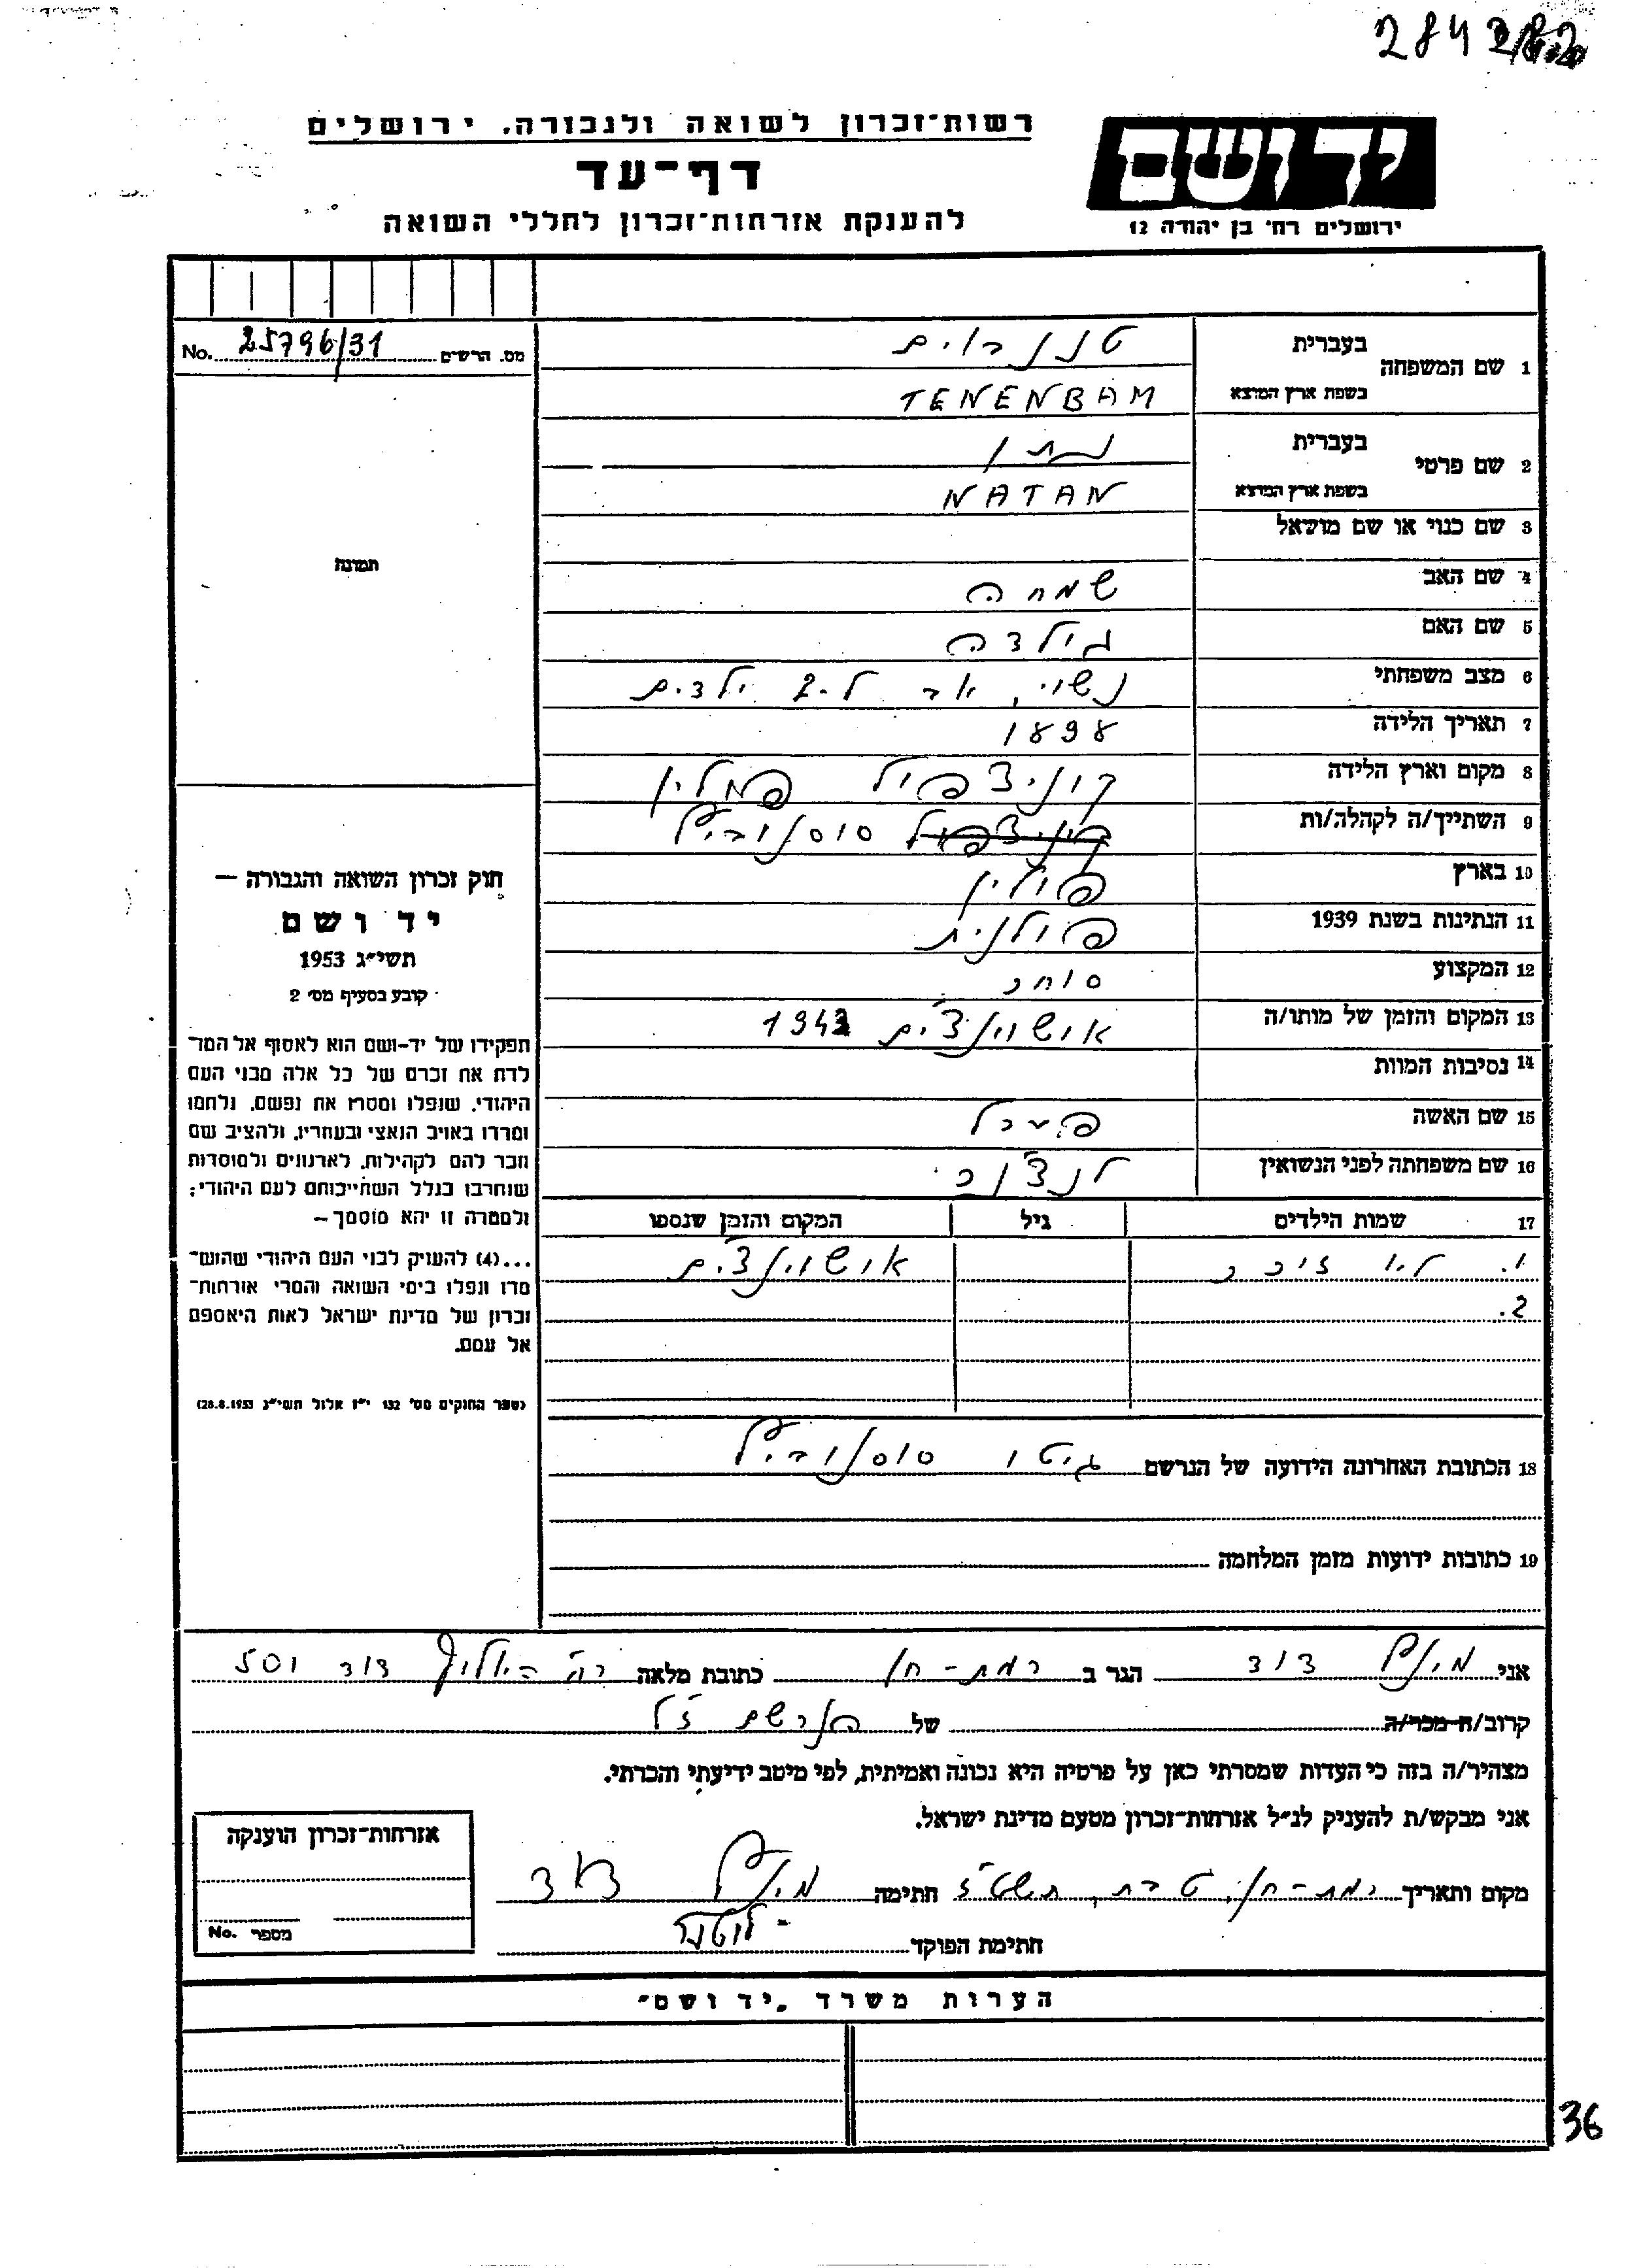 2843
רשות־זכרון לשואה ולגבורה, ירושלים
יד ושם
דף־עד
להענקת אזרחות־זכרון לחללי השואה
ירושלים רח' בן יהודה 12
No. 25796/31 מס. הרשים
1 שם המשפחה בעברית טננבוים
בשפת ארץ המוצא TENENBAM
2 שם פרטי בעברית נתן
בשפת ארץ המוצא NATAN
3 שם כנוי או שם מושאל
תמונה
4 שם האב שמחה
5 שם האם גולדה
6 מצב משפחתי נשוי, אב ל-2 ילדים
7 תאריך הלידה 1898
8 מקום וארץ הלידה קוניצפול פולין
9 השתייך/ה לקהלה/ות קוניצפול סוסנוביץ
10 בארץ פולין
11 הנתינות בשנת 1939 פולנית
12 המקצוע סוחר
13 המקום והזמן של מותו/ה אושוינצ'ים 1943
14 נסיבות המוות
15 שם האשה
16 שם משפחתה לפני הנשואין
17 שמות הילדים גיל המקום והזמן שנספו
1. אושוינצ'ים
2.
חוק זכרון השואה והגבורה —
יד ושם
תשי״ג 1953
קובע בסעיף מס' 2
תפקידו של יד-ושם הוא לאסוף אל המו־
לדת את זכרם של כל אלה מבני העם
היהודי, שנפלו ומסרו את נפשם, נלחמו
ומרדו באויב הנאצי ובעוזריו, ולהציב שם
וזכר להם לקהילות, לארגונים ולמוסדות
שנחרבו בגלל השתייכותם לעם היהודי;
ולמטרה זו יהא מוסמך —
...(4) להעניק לבני העם היהודי שהוש־
מדו ונפלו בימי השואה והמרי אזרחות־
זכרון של מדינת ישראל לאות היאספם
אל עמם.
(ספר החוקים מס' 132 י״ז אלול תשי״ג 28.8.1953)
18 הכתובת האחרונה הידועה של הנרשם גיטו סוסנוביץ
19 כתובות ידועות מזמן המלחמה
אני דוד הגר ב רמת-חן כתובת מלאה דוד 501
קרוב/ה מכר/ה של הנרשם ז"ל
מצהיר/ה בזה כי העדות שמסרתי כאן על פרטיה היא נכונה ואמיתית, לפי מיטב ידיעתי והכרתי.
אני מבקש/ת להעניק לנ״ל אזרחות־זכרון מטעם מדינת ישראל.
מקום ותאריך רמת-חן, טבת, תשט"ז חתימה דוד
חתימת הפוקד
אזרחות־זכרון הוענקה
No. מספר
הערות משרד „יד ושם״
36